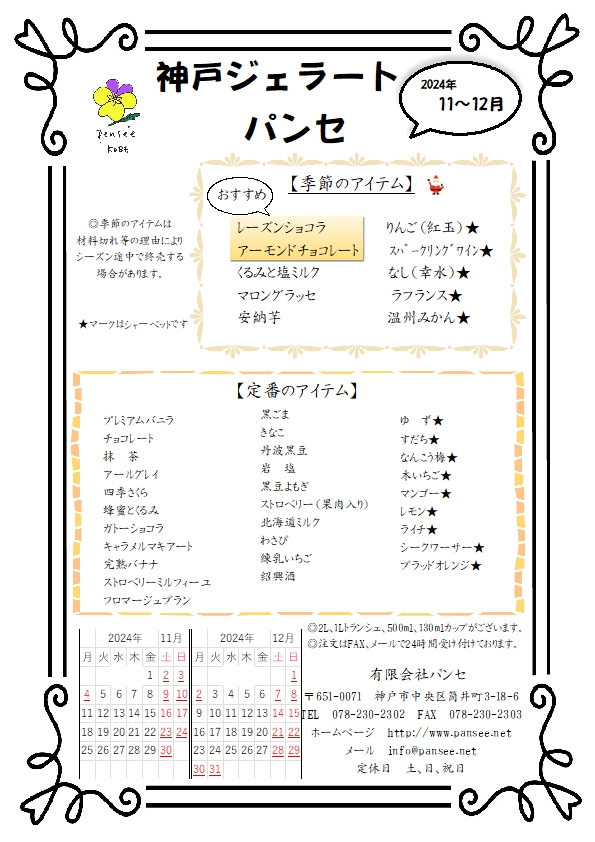 神戸ジェラート
パンセ
2024年
11～12月
pensée
KOBE
おすすめ
【季節のアイテム】
レーズンショコラ
アーモンドチョコレート
くるみと塩ミルク
マロングラッセ
安納芋
りんご（紅玉）★
ｽﾊﾟｰｸﾘﾝｸﾞﾜｲﾝ★
なし（幸水）★
ラフランス★
温州みかん★
◎季節のアイテムは
材料切れ等の理由により
シーズン途中で終売する
場合があります。
★マークはシャーベットです
【定番のアイテム】
プレミアムバニラ
チョコレート
抹　茶
アールグレイ
四季さくら
蜂蜜とくるみ
ガトーショコラ
キャラメルマキアート
完熟バナナ
ストロベリーミルフィーユ
フロマージュブラン
黒ごま
きなこ
丹波黒豆
岩　塩
黒豆よもぎ
ストロベリー（果肉入り）
北海道ミルク
わさび
練乳いちご
紹興酒
ゆ　ず★
すだち★
なんこう梅★
木いちご★
マンゴー★
レモン★
ライチ★
シークワーサー★
ブラッドオレンジ★
2024年 11月
月 火 水 木 金 土 日
1 2 3
4 5 6 7 8 9 10
11 12 13 14 15 16 17
18 19 20 21 22 23 24
25 26 27 28 29 30
2024年 12月
月 火 水 木 金 土 日
1
2 3 4 5 6 7 8
9 10 11 12 13 14 15
16 17 18 19 20 21 22
23 24 25 26 27 28 29
30 31
◎2L、1Lトランシュ、500ml、130mlカップがございます。
◎注文はFAX、メールで24時間受け付けております。
有限会社パンセ
〒651-0071　神戸市中央区筒井町3-18-6
TEL　078-230-2302　FAX　078-230-2303
ホームページ　http://www.pansee.net
メール　info@pansee.net
定休日　土、日、祝日